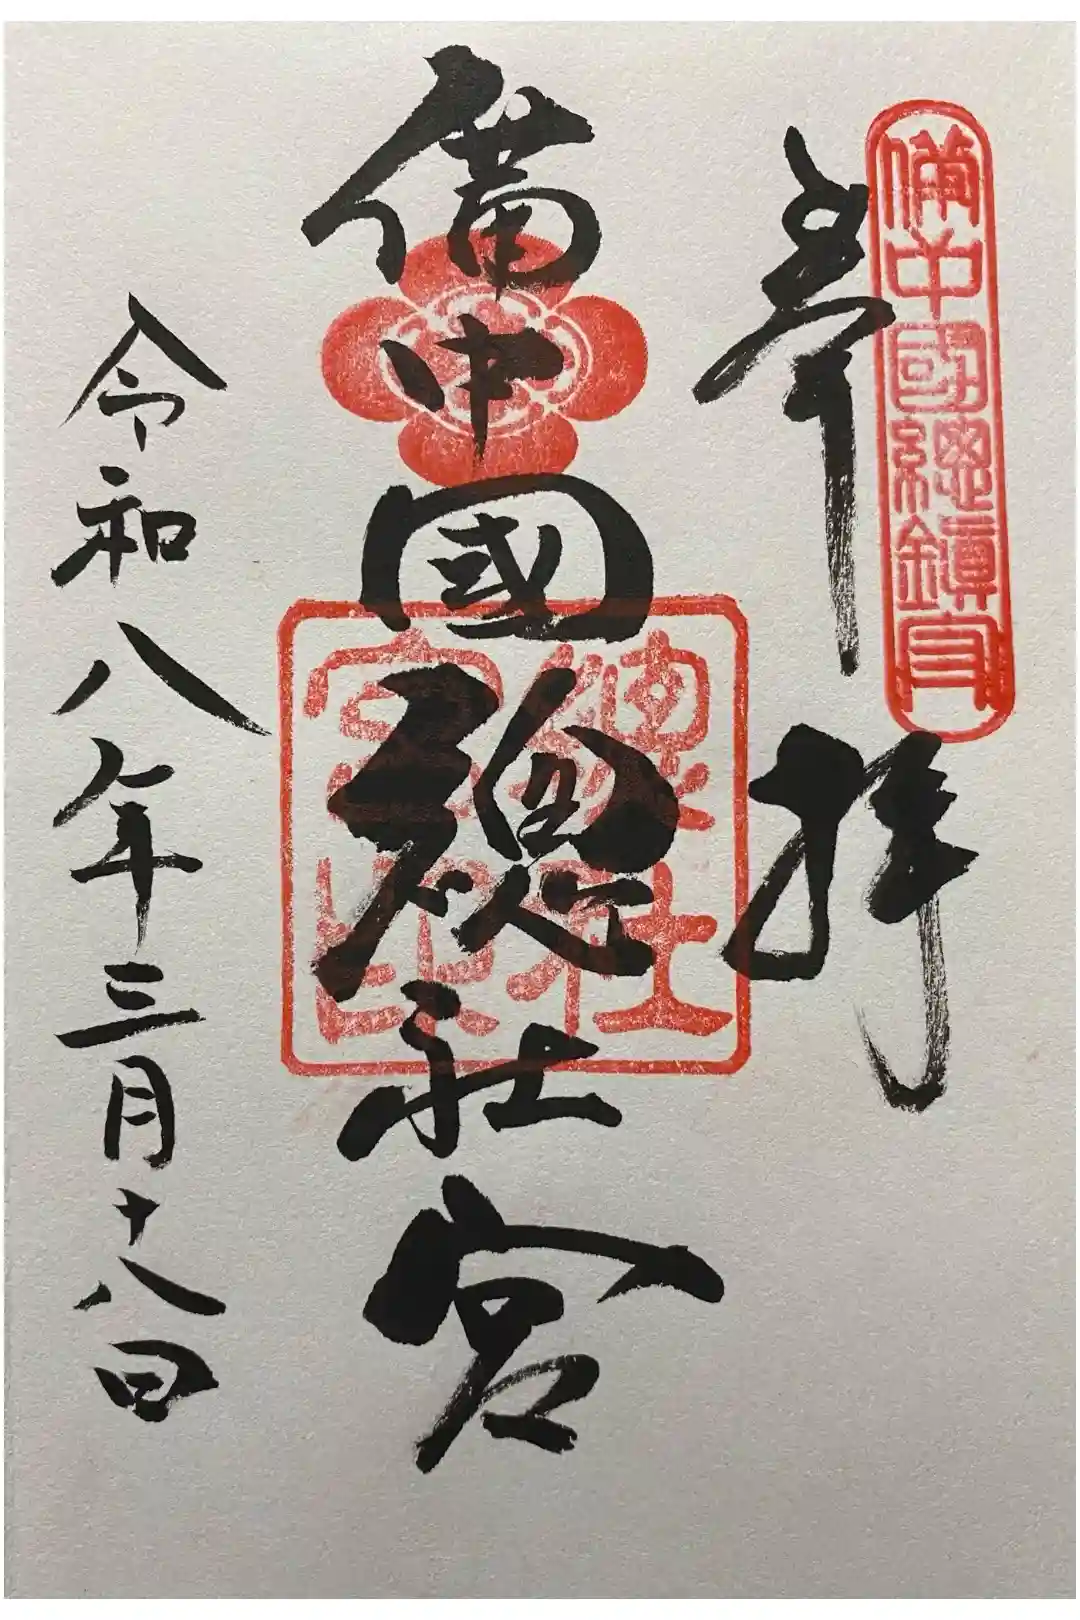 備中國總鎮守
奉拝
備中國總社宮
總社宮印
令和八年三月十八日